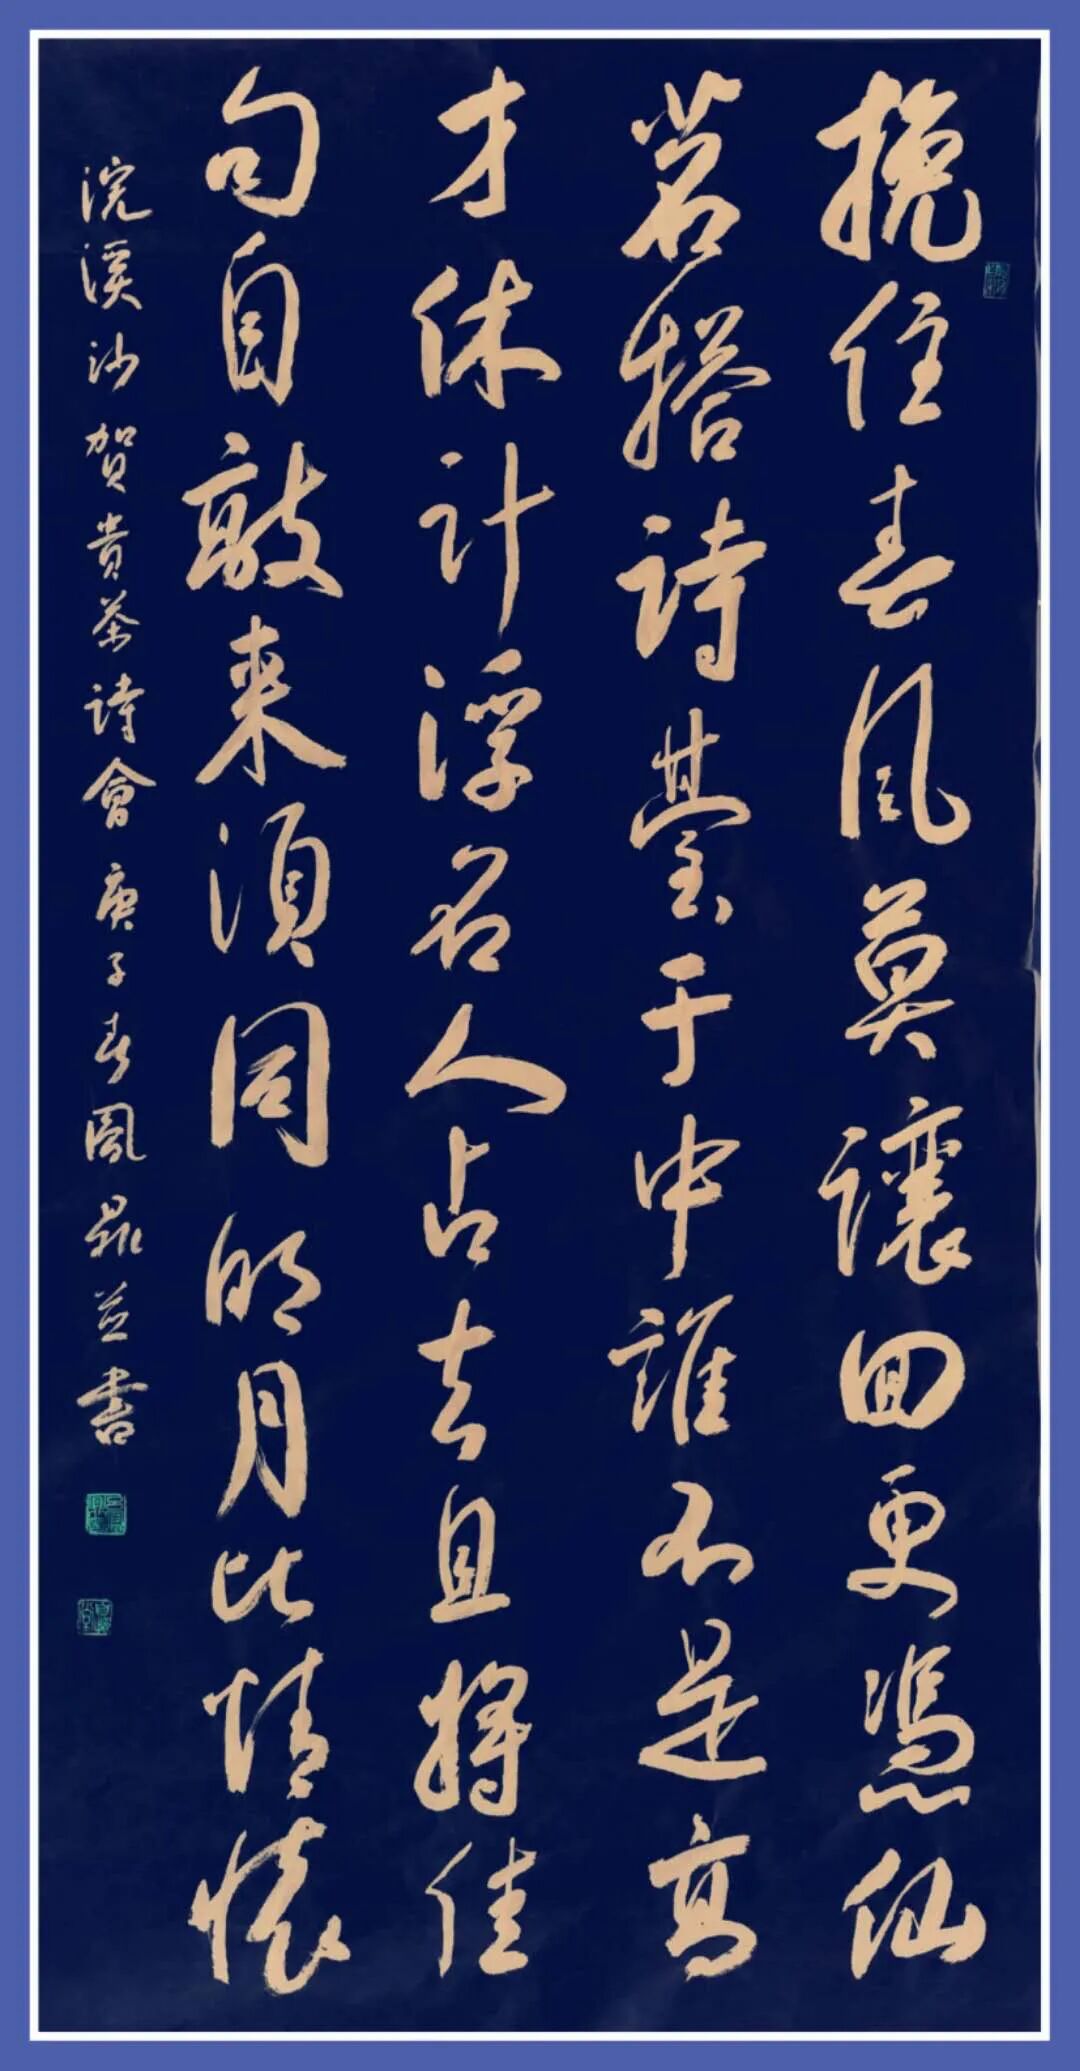 挽住春风莫讓回更憑仙
茗搭詩臺于中誰不是高
才休计浮名人占去且將佳
句自敲来須同明月比情懷
浣溪沙贺贵茶詩會庚子春鳳鼎並書